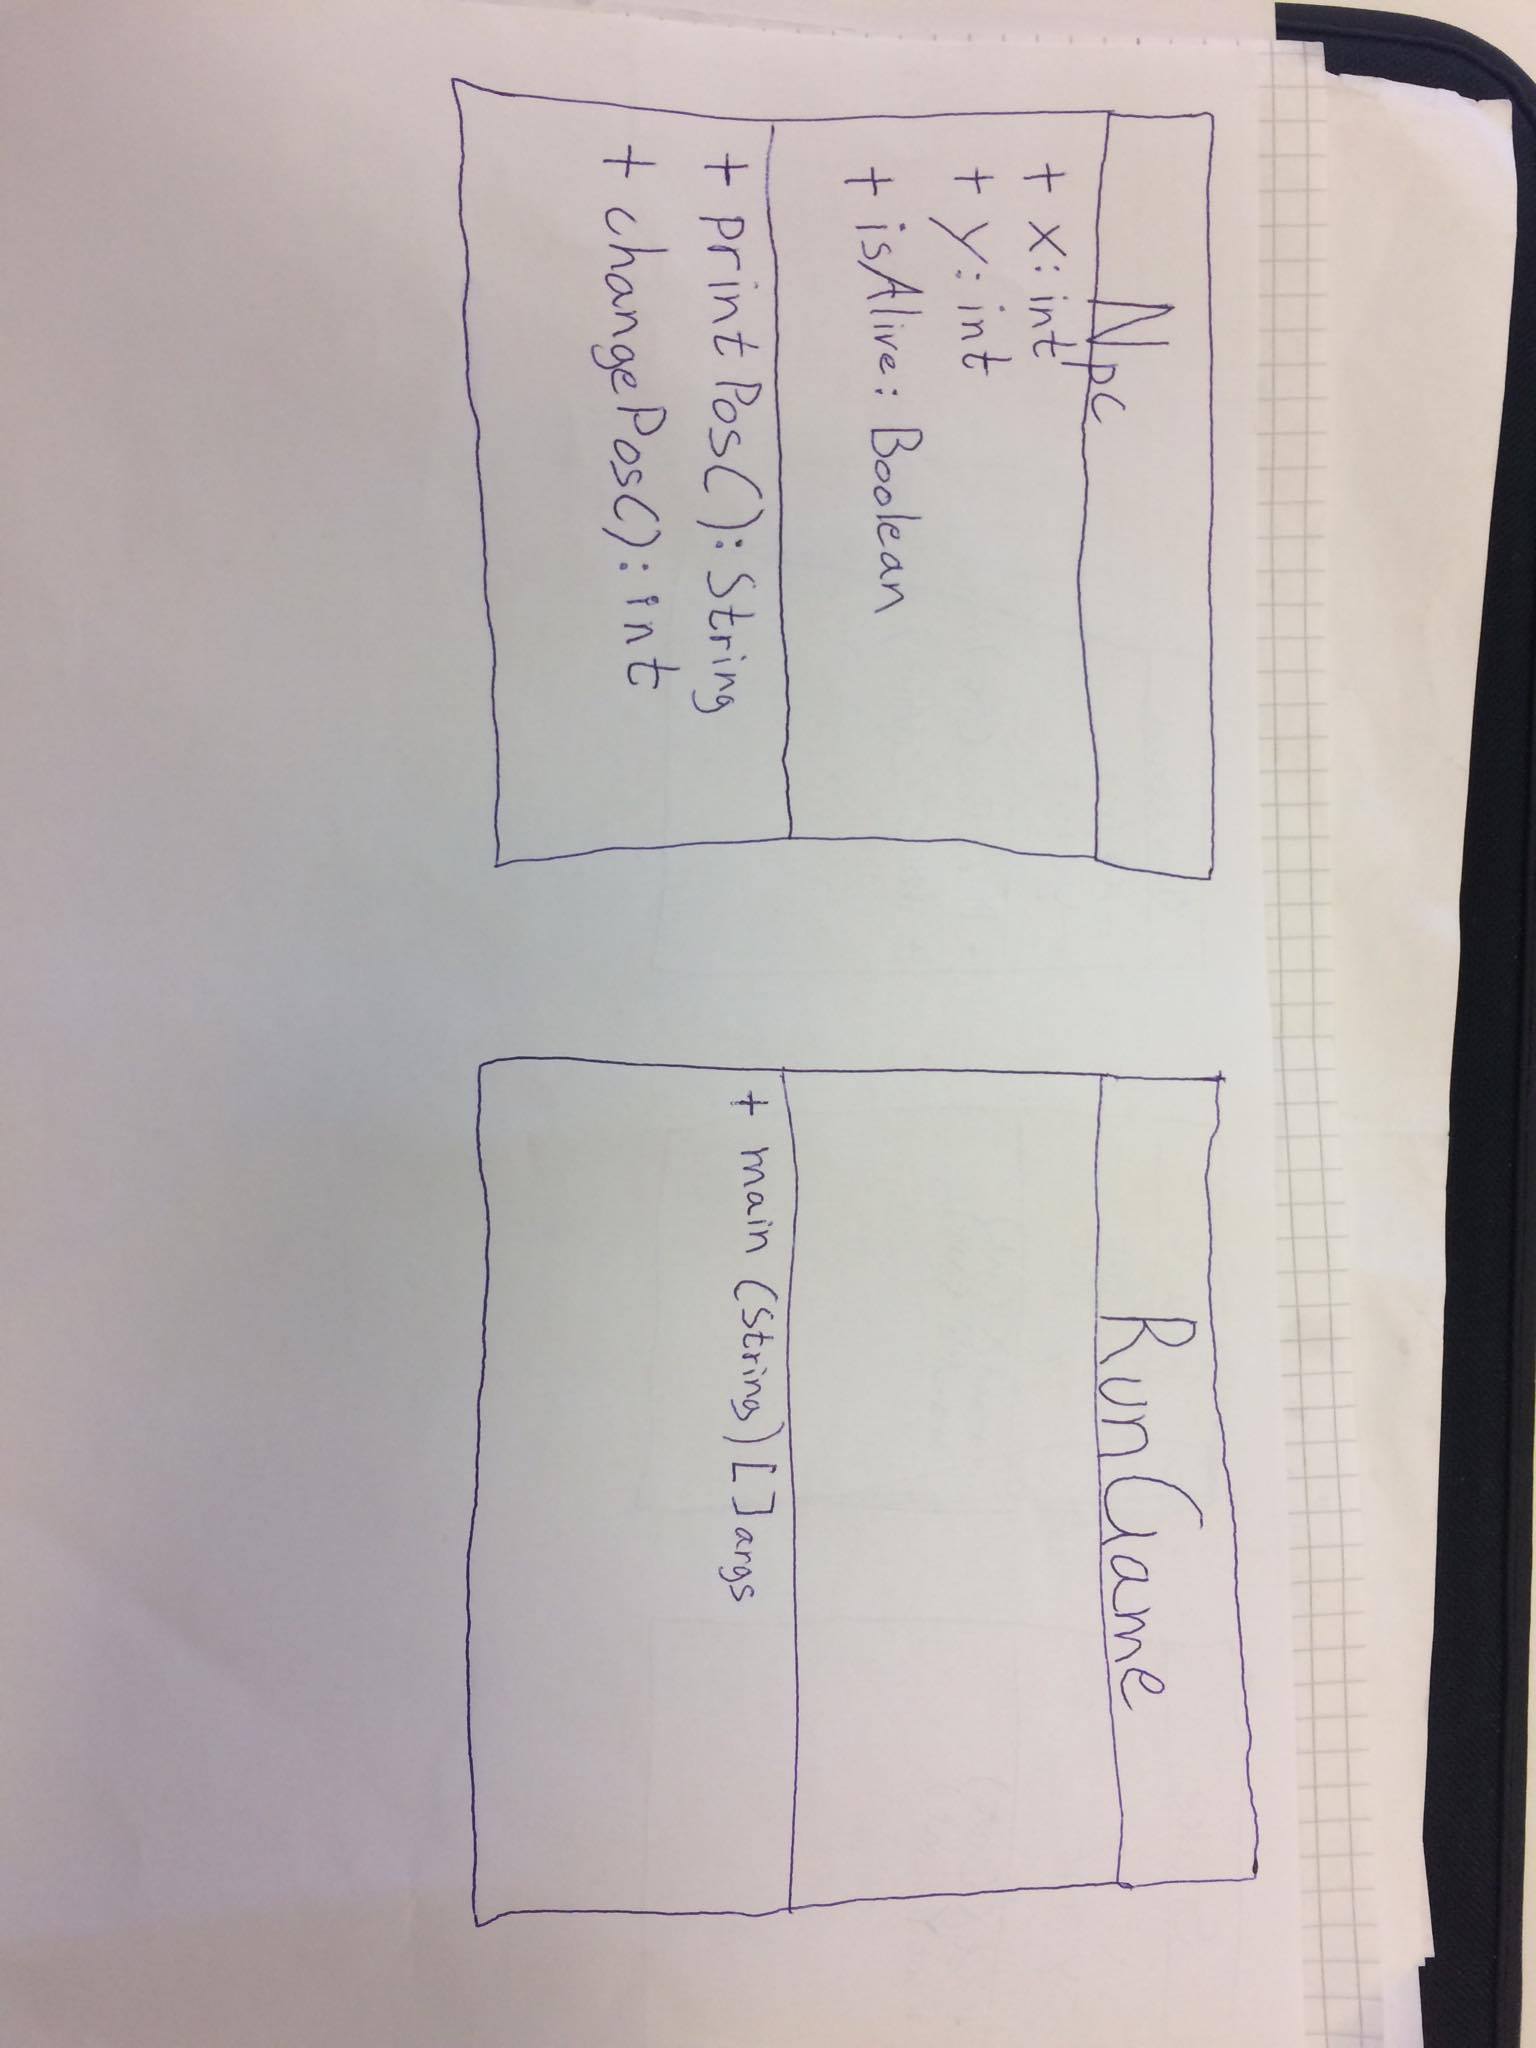 Npc
+ x: int
+ y: int
+ isAlive: Boolean
+ printPos(): String
+ changePos(): int
RunGame
+ main (String) [] args